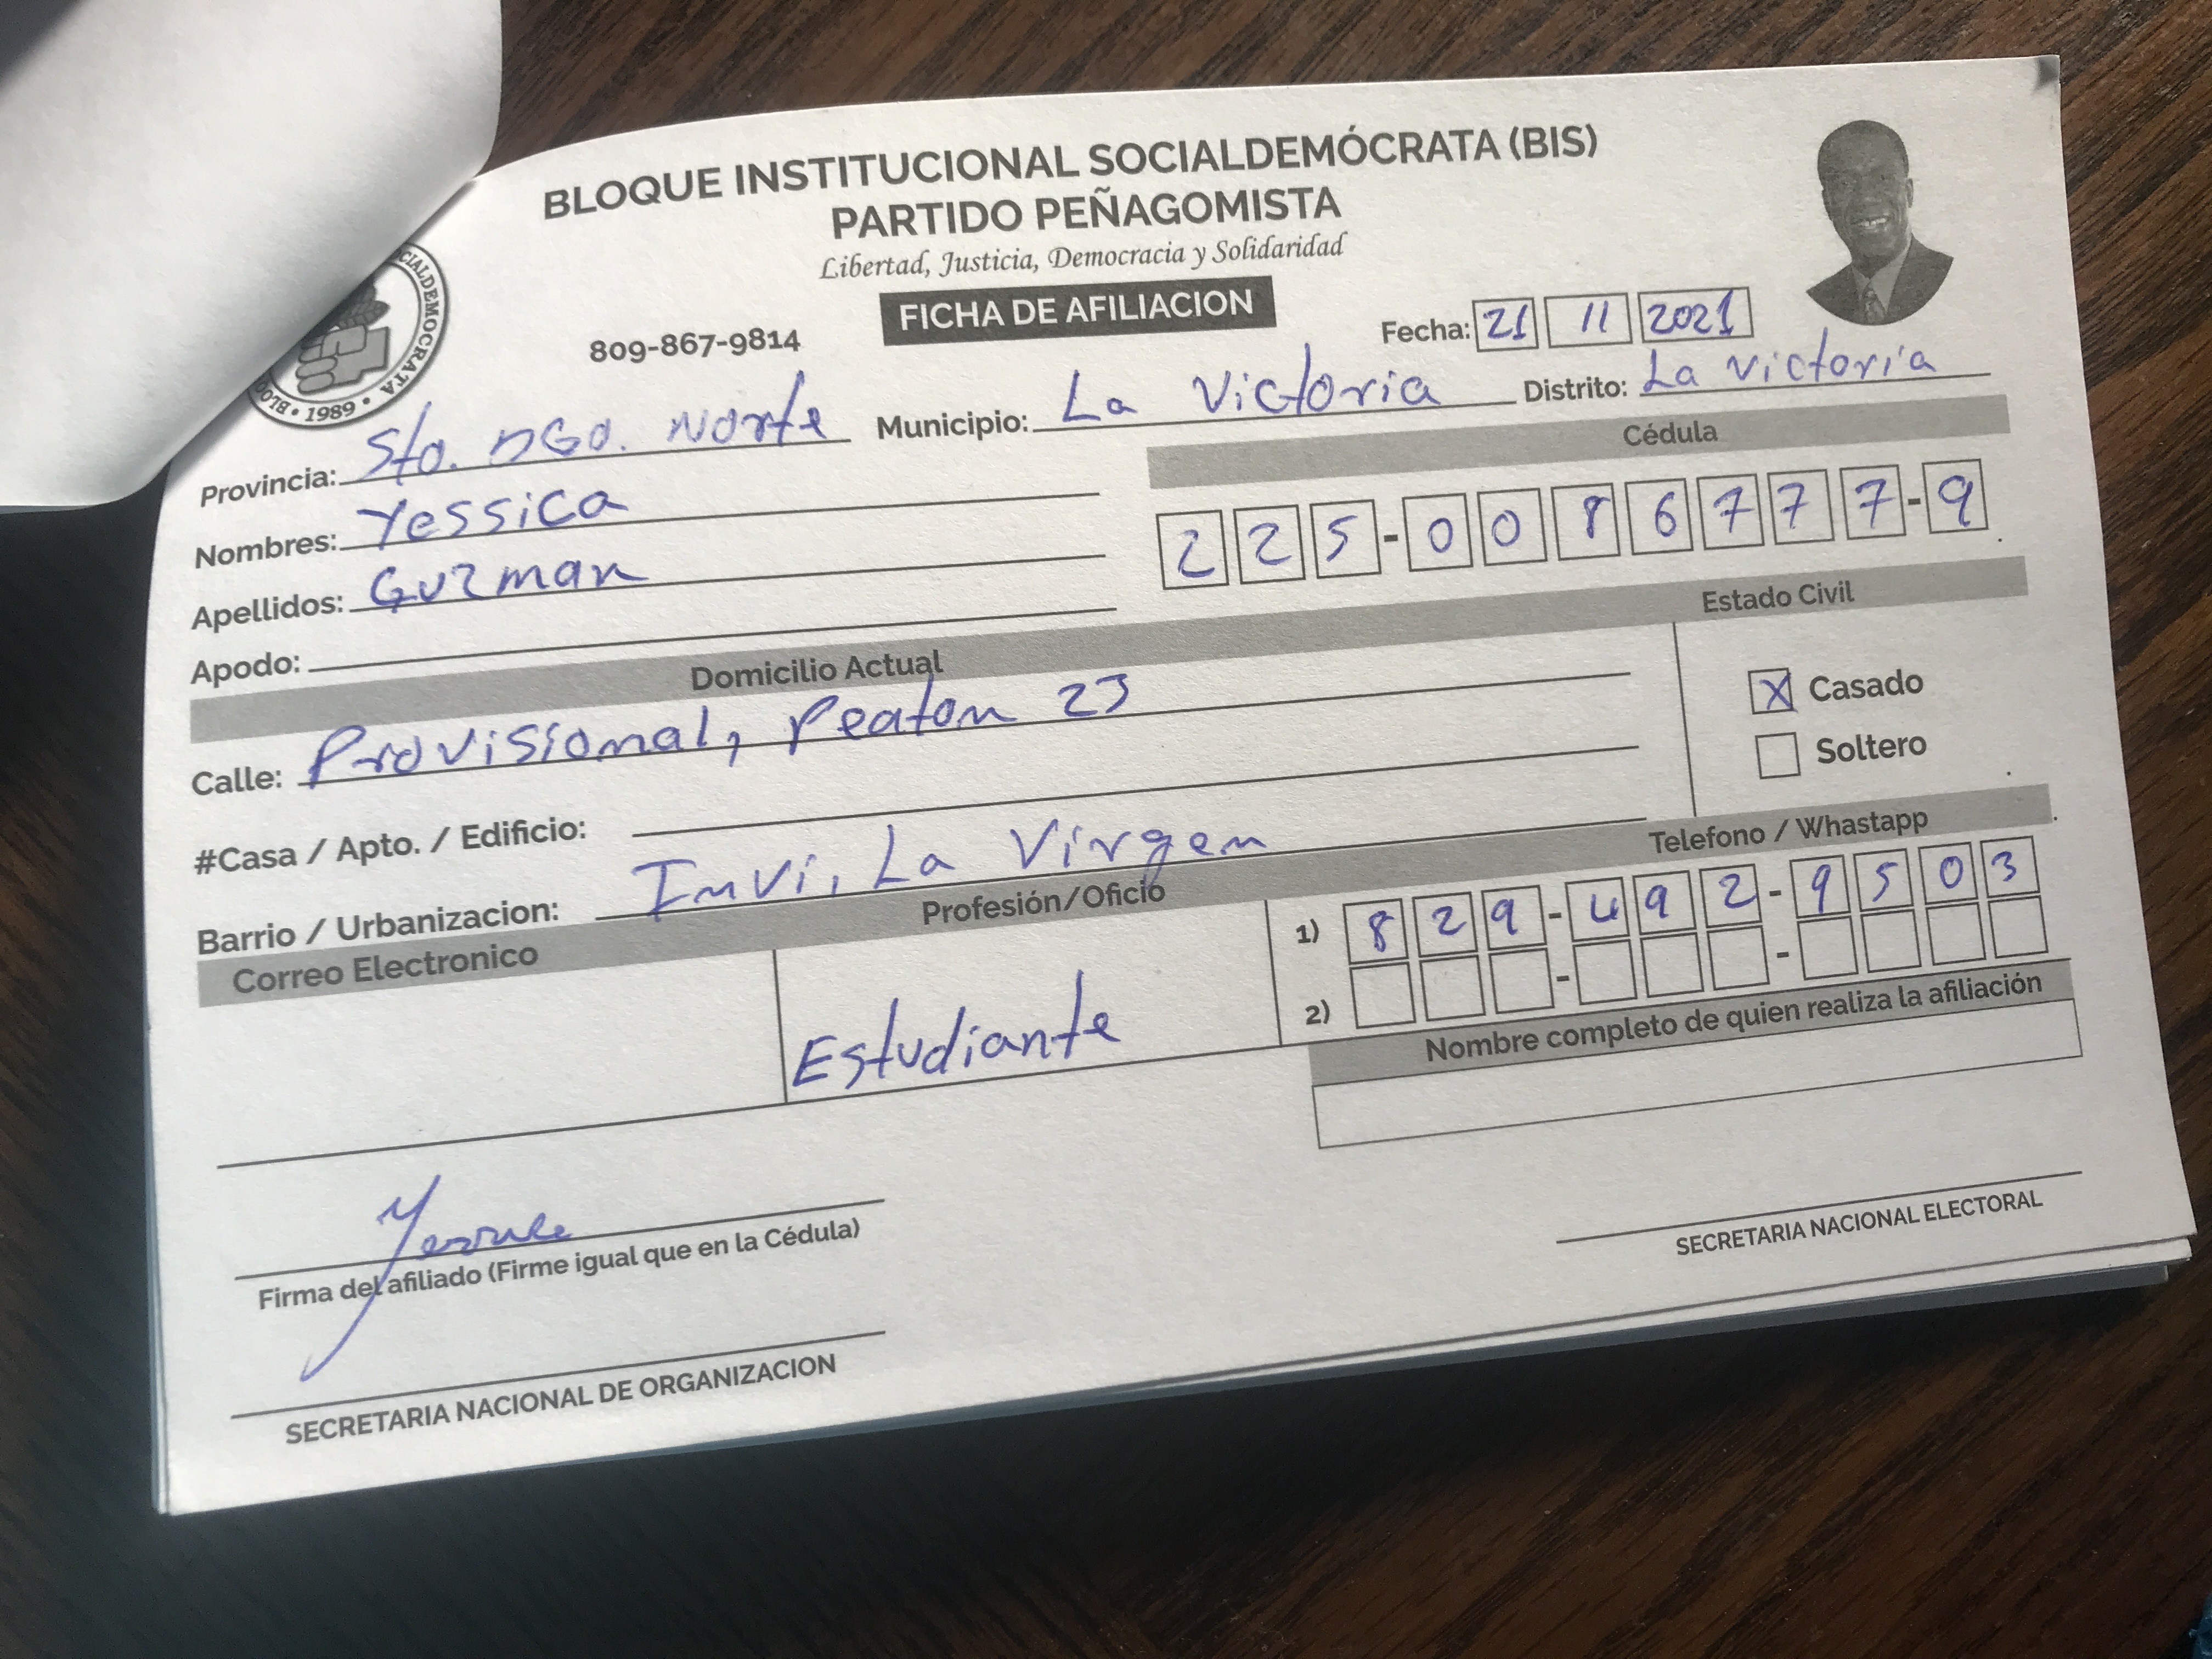 BLOQUE INSTITUCIONAL SOCIALDEMÓCRATA (BIS)
PARTIDO PEÑAGOMISTA
Libertad, Justicia, Democracia y Solidaridad
FICHA DE AFILIACION
809-867-9814
Fecha: 21 11 2021
CIALDEMOCRATA • BLO • 1989 •
Provincia: Sto. DGo. Norte Municipio: La Victoria Distrito: La Victoria
Cédula
Nombres: Yessica
225-0086777-9
Apellidos: Guzman
Apodo:
Domicilio Actual Estado Civil
Calle: Provisional, Peaton 23
X Casado
Soltero
#Casa / Apto. / Edificio:
Barrio / Urbanizacion: Invi, La Virgen
Telefono / Whastapp
Correo Electronico Profesión/Oficio
1) 829-492-9503
2) - -
Estudiante
Nombre completo de quien realiza la afiliación
Firma del afiliado (Firme igual que en la Cédula)
SECRETARIA NACIONAL ELECTORAL
SECRETARIA NACIONAL DE ORGANIZACION